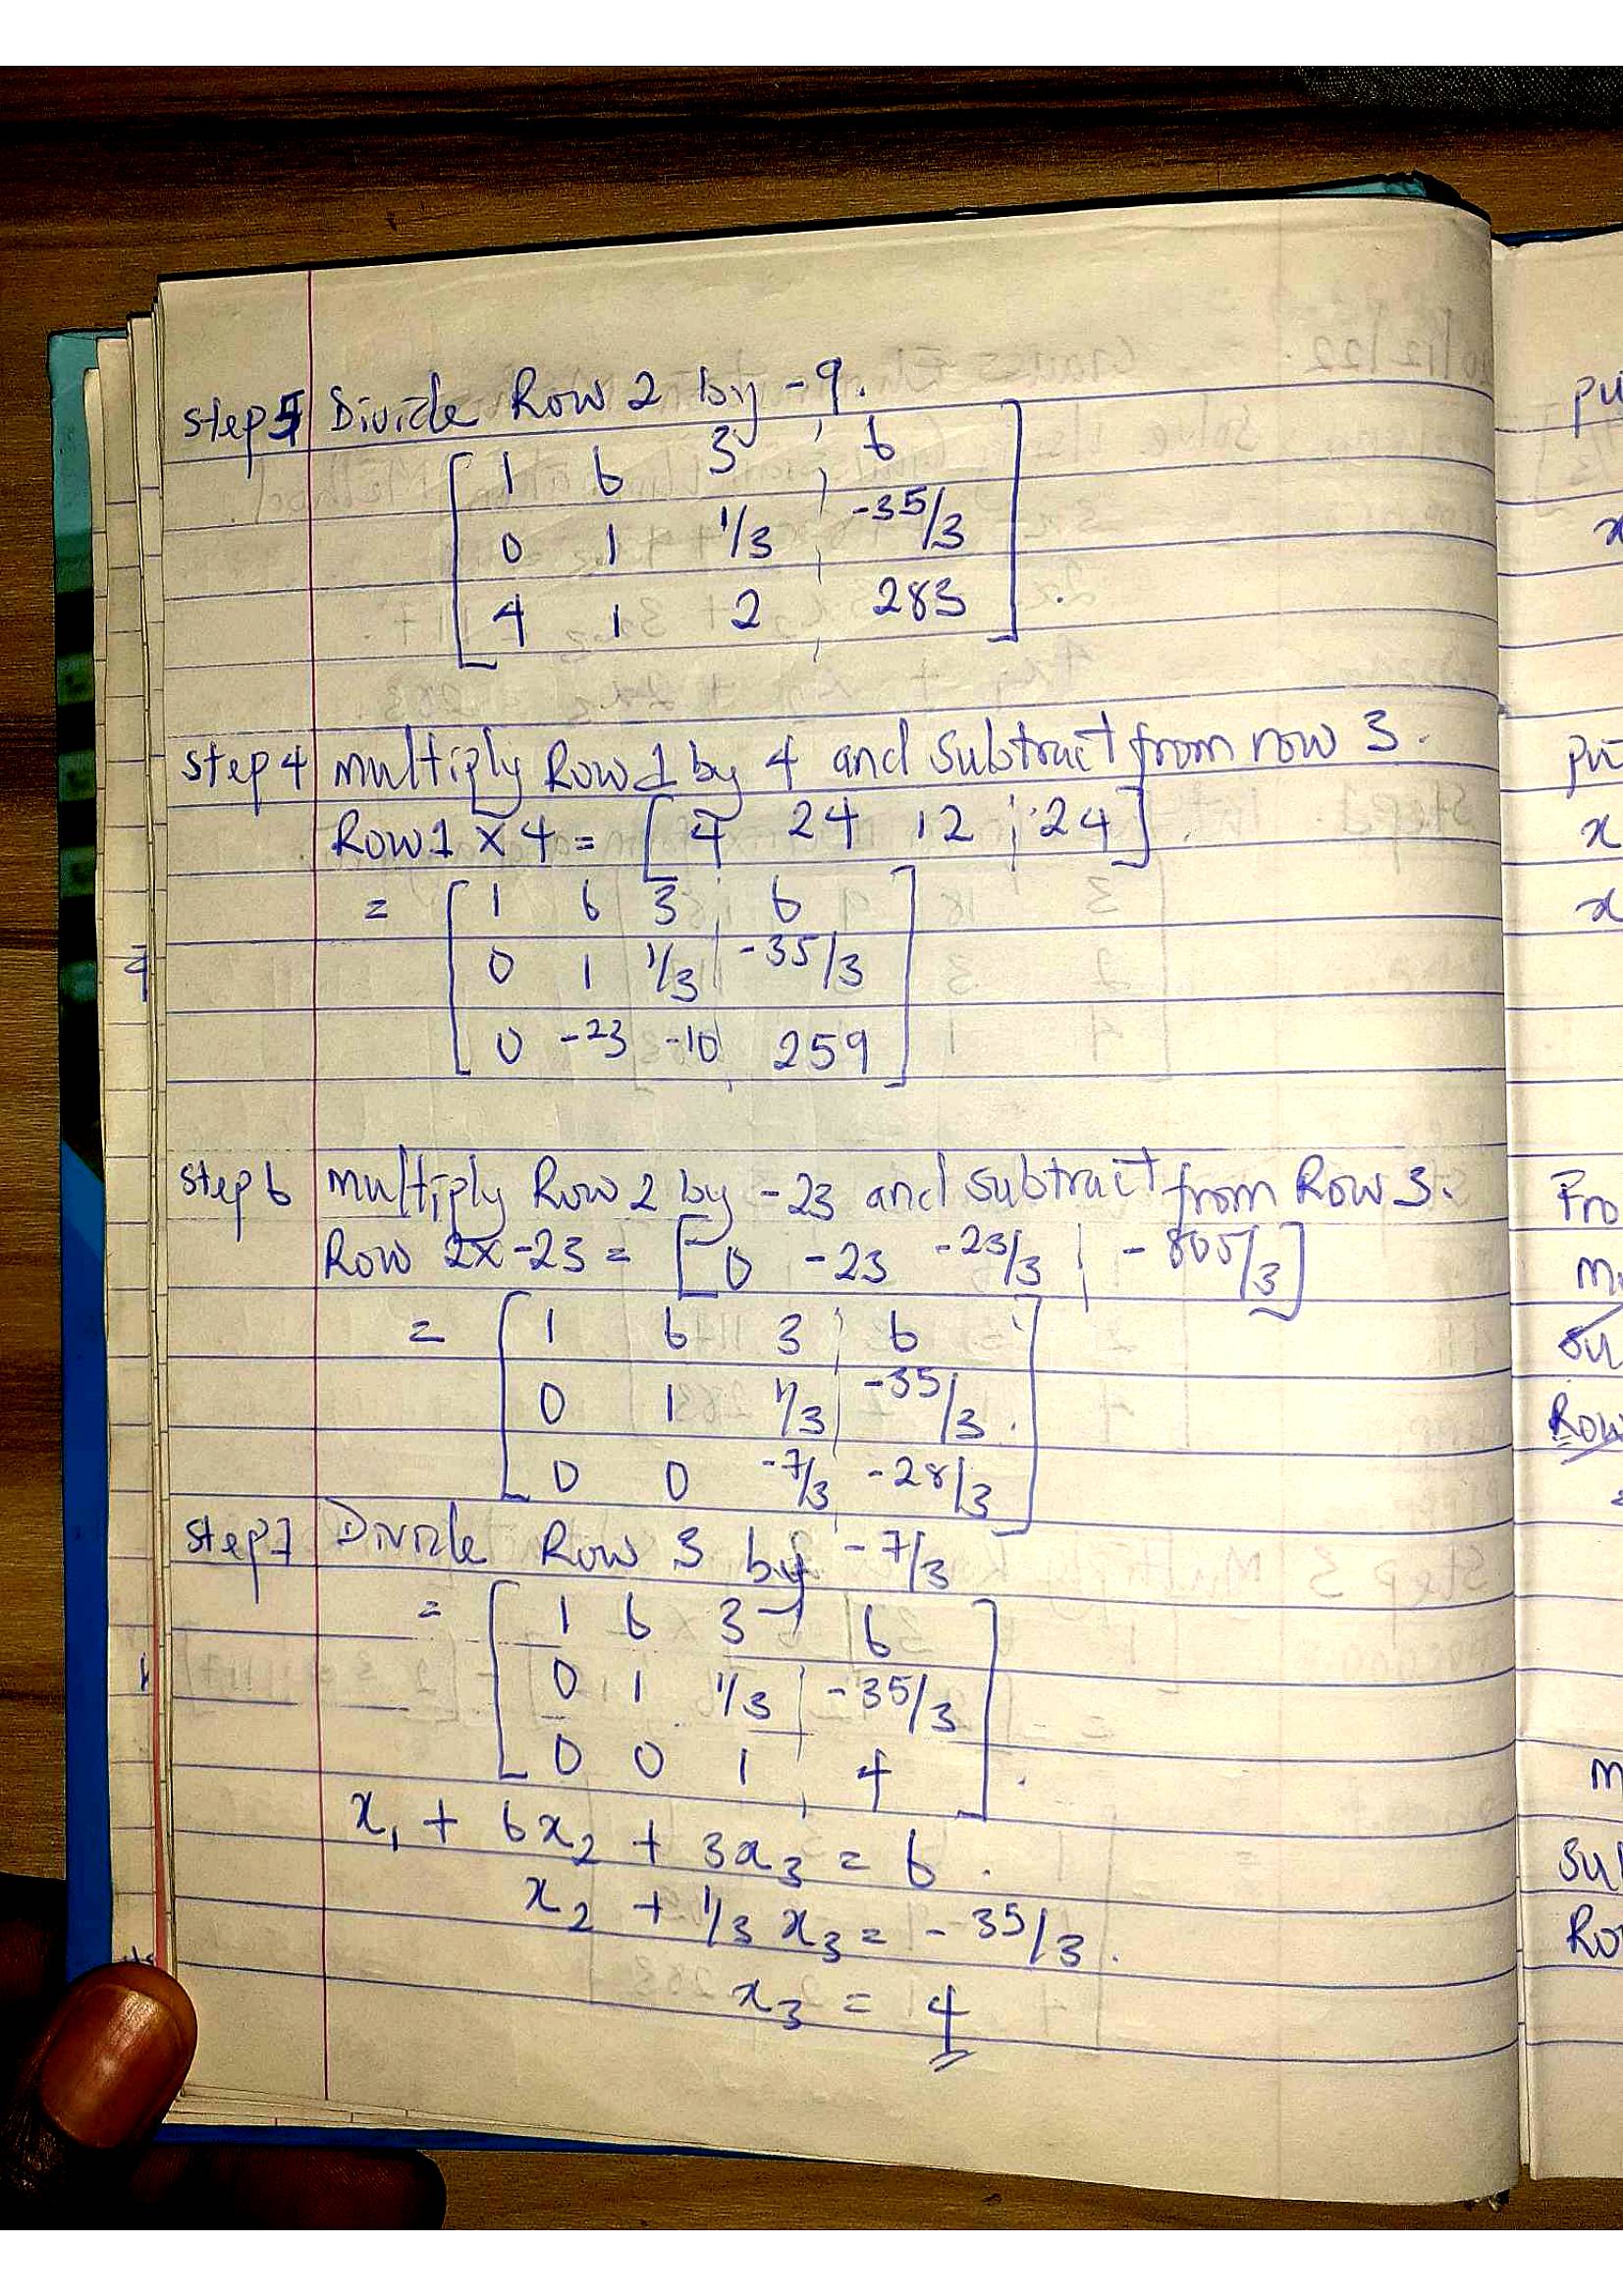 Step 5 Divide Row 2 by -9.
[ 1 6 3 ¦ 6 ]
[ 0 1 1/3 ¦ -35/3 ]
[ 4 1 2 ¦ 283 ].
Step 4 Multiply Row 1 by 4 and subtract from row 3.
Row 1 × 4 = [ 4 24 12 ¦ 24 ].
= [ 1 6 3 ¦ 6 ]
[ 0 1 1/3 ¦ -35/3 ]
[ 0 -23 -10 ¦ 259 ]
Step 6 Multiply Row 2 by -23 and subtract from Row 3.
Row 2 × -23 = [ 0 -23 -23/3 ¦ -805/3 ]
= [ 1 6 3 ¦ 6 ]
[ 0 1 1/3 ¦ -35/3 ]
[ 0 0 -7/3 ¦ -28/3 ]
Step 7 Divide Row 3 by -7/3
= [ 1 6 3 ¦ 6 ]
[ 0 1 1/3 ¦ -35/3 ]
[ 0 0 1 ¦ 4 ].
x₁ + 6x₂ + 3x₃ = 6.
x₂ + 1/3 x₃ = -35/3.
x₃ = 4